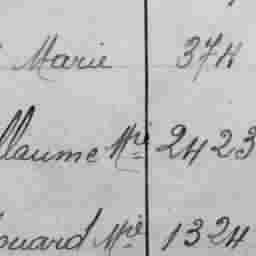 Marie 374
llaume Mie 2423
ouard Mie 1324